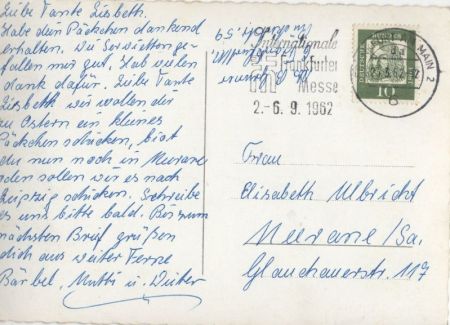 Liebe Tante Lisbeth.
Habe dein Päckchen dankend
erhalten. Die Servietten ge-
fallen mir gut. Hab vielen
dank dafür. Liebe Tante
Lisbeth wir wollen dir
zu Ostern ein kleines
Päckchen schicken, bist
du nun noch in Meerane
oder sollen wir es nach
Leipzig schicken. Schreibe
es uns bitte bald. Bis zum
nächsten Brief grüßen
dich aus weiter Ferne
Bärbel, Mutti u. Dieter
Internationale
Frankfurter
Messe
2.-6. 9. 1962
MAIN 2
DEUTSCHE
BUNDESPOST
10
Frau
Elisabeth Ulbricht
Meerane/Sa.
Glauchauerstr. 117